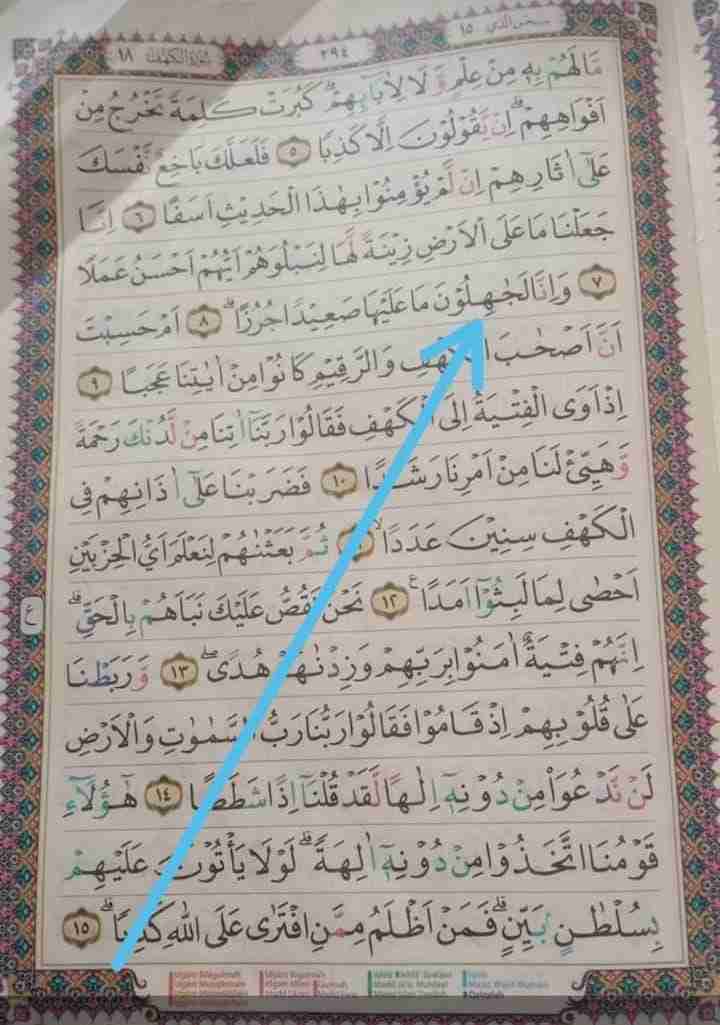 سبحن الذي ١٥
٢٩٤
سورة الكهف ١٨
مَا لَهُمْ بِهٖ مِنْ عِلْمٍ وَّلَا لِاٰبَاۤىِٕهِمْۗ كَبُرَتْ كَلِمَةً تَخْرُجُ مِنْ
اَفْوَاهِهِمْۗ اِنْ يَّقُوْلُوْنَ اِلَّا كَذِبًا ٥ فَلَعَلَّكَ بَاخِعٌ نَّفْسَكَ
عَلٰٓى اٰثَارِهِمْ اِنْ لَّمْ يُؤْمِنُوْا بِهٰذَا الْحَدِيْثِ اَسَفًا ٦ اِنَّا
جَعَلْنَا مَا عَلَى الْاَرْضِ زِيْنَةً لَّهَا لِنَبْلُوَهُمْ اَيُّهُمْ اَحْسَنُ عَمَلًا
٧ وَاِنَّا لَجٰهِلُوْنَ مَا عَلَيْهَا صَعِيْدًا جُرُزًاۗ ٨ اَمْ حَسِبْتَ
اَنَّ اَصْحٰبَ الْكَهْفِ وَالرَّقِيْمِ كَانُوْا مِنْ اٰيٰتِنَا عَجَبًا ٩
اِذْ اَوَى الْفِتْيَةُ اِلَى الْكَهْفِ فَقَالُوْا رَبَّنَآ اٰتِنَا مِنْ لَّدُنْكَ رَحْمَةً
وَّهَيِّئْ لَنَا مِنْ اَمْرِنَا رَشَدًا ١٠ فَضَرَبْنَا عَلٰٓى اٰذَانِهِمْ فِى
الْكَهْفِ سِنِيْنَ عَدَدًاۙ ثُمَّ بَعَثْنٰهُمْ لِنَعْلَمَ اَيُّ الْحِزْبَيْنِ
اَحْصٰى لِمَا لَبِثُوْٓا اَمَدًا ࣖ ١٢ نَحْنُ نَقُصُّ عَلَيْكَ نَبَاَهُمْ بِالْحَقِّۗ
ع
اِنَّهُمْ فِتْيَةٌ اٰمَنُوْا بِرَبِّهِمْ وَزِدْنٰهُمْ هُدًىۖ ١٣ وَّرَبَطْنَا
عَلٰى قُلُوْبِهِمْ اِذْ قَامُوْا فَقَالُوْا رَبُّنَا رَبُّ السَّمٰوٰتِ وَالْاَرْضِ
لَنْ نَّدْعُوَا۟ مِنْ دُوْنِهٖٓ اِلٰهًا لَّقَدْ قُلْنَآ اِذًا شَطَطًا ١٤ هٰٓؤُلَاۤءِ
قَوْمُنَا اتَّخَذُوْا مِنْ دُوْنِهٖٓ اٰلِهَةًۗ لَوْلَا يَأْتُوْنَ عَلَيْهِمْ
بِسُلْطٰنٍ بَيِّنٍۗ فَمَنْ اَظْلَمُ مِمَّنِ افْتَرٰى عَلَى اللّٰهِ كَذِبًاۗ ١٥